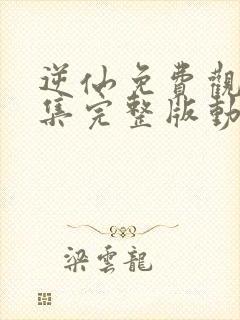 逆仙免費觀
集完整版動
梁雲龍